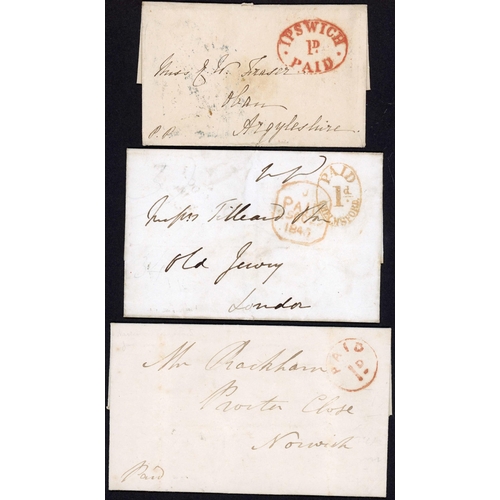 IPSWICH
1D.
PAID
Miss J. W. Fraser
Oban
Argyleshire
PAID
1d
PAID
1844
Messrs Tilleard
Old Jewry
London
PAID
1D
Mr Rackham
Procter Close
Norwich
Paid